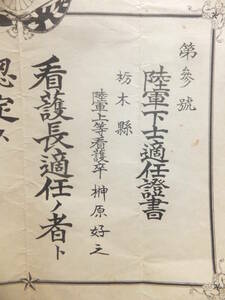 第參號
陸軍下士適任證書
栃木縣
陸軍上等看護卒 榊原好之
看護長適任ノ者ト
認定ス